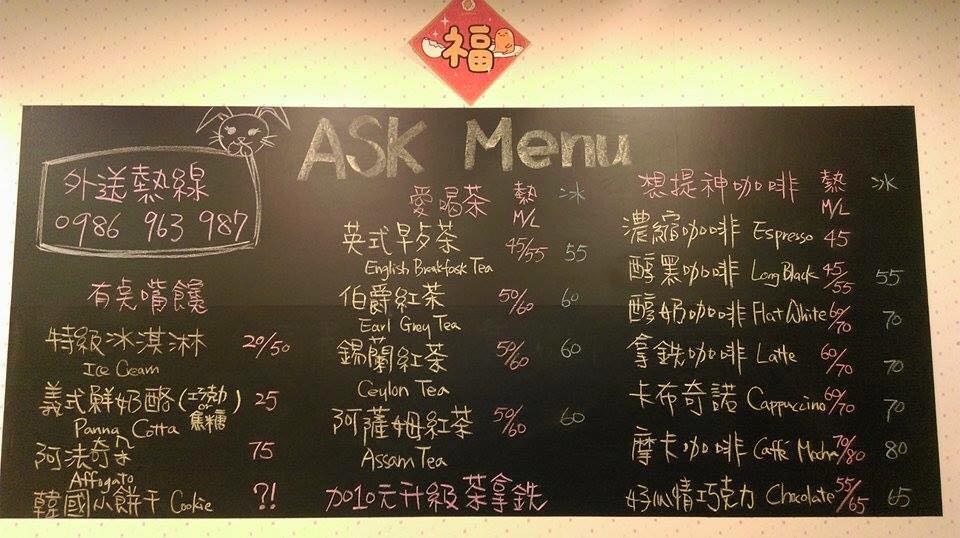 福
ASK Menu
外送熱線
0986 963 987
有桌嘴饞
特級冰淇淋 20/50
Ice Cream
義式鮮奶酪(巧克力 or 焦糖) 25
Panna Cotta
阿法奇朵 75
Affogato
韓國小餅干 Cookie ?!
愛喝茶 熱 M/L 冰
英式早茶 45/55 55
English Breakfask Tea
伯爵紅茶 50/60 60
Earl Grey Tea
錫蘭紅茶 50/60 60
Ceylon Tea
阿薩姆紅茶 50/60 60
Assam Tea
加10元升級茶拿鉄
想提神咖啡 熱 M/L 冰
濃縮咖啡 Espresso 45
醇黑咖啡 Long Black 45/55 55
醇奶咖啡 Flat White 60/70 70
拿鉄咖啡 Latte 60/70 70
卡布奇諾 Cappuccino 60/70 70
摩卡咖啡 Caffé Mocha 70/80 80
好心情巧克力 Chocolate 55/65 65